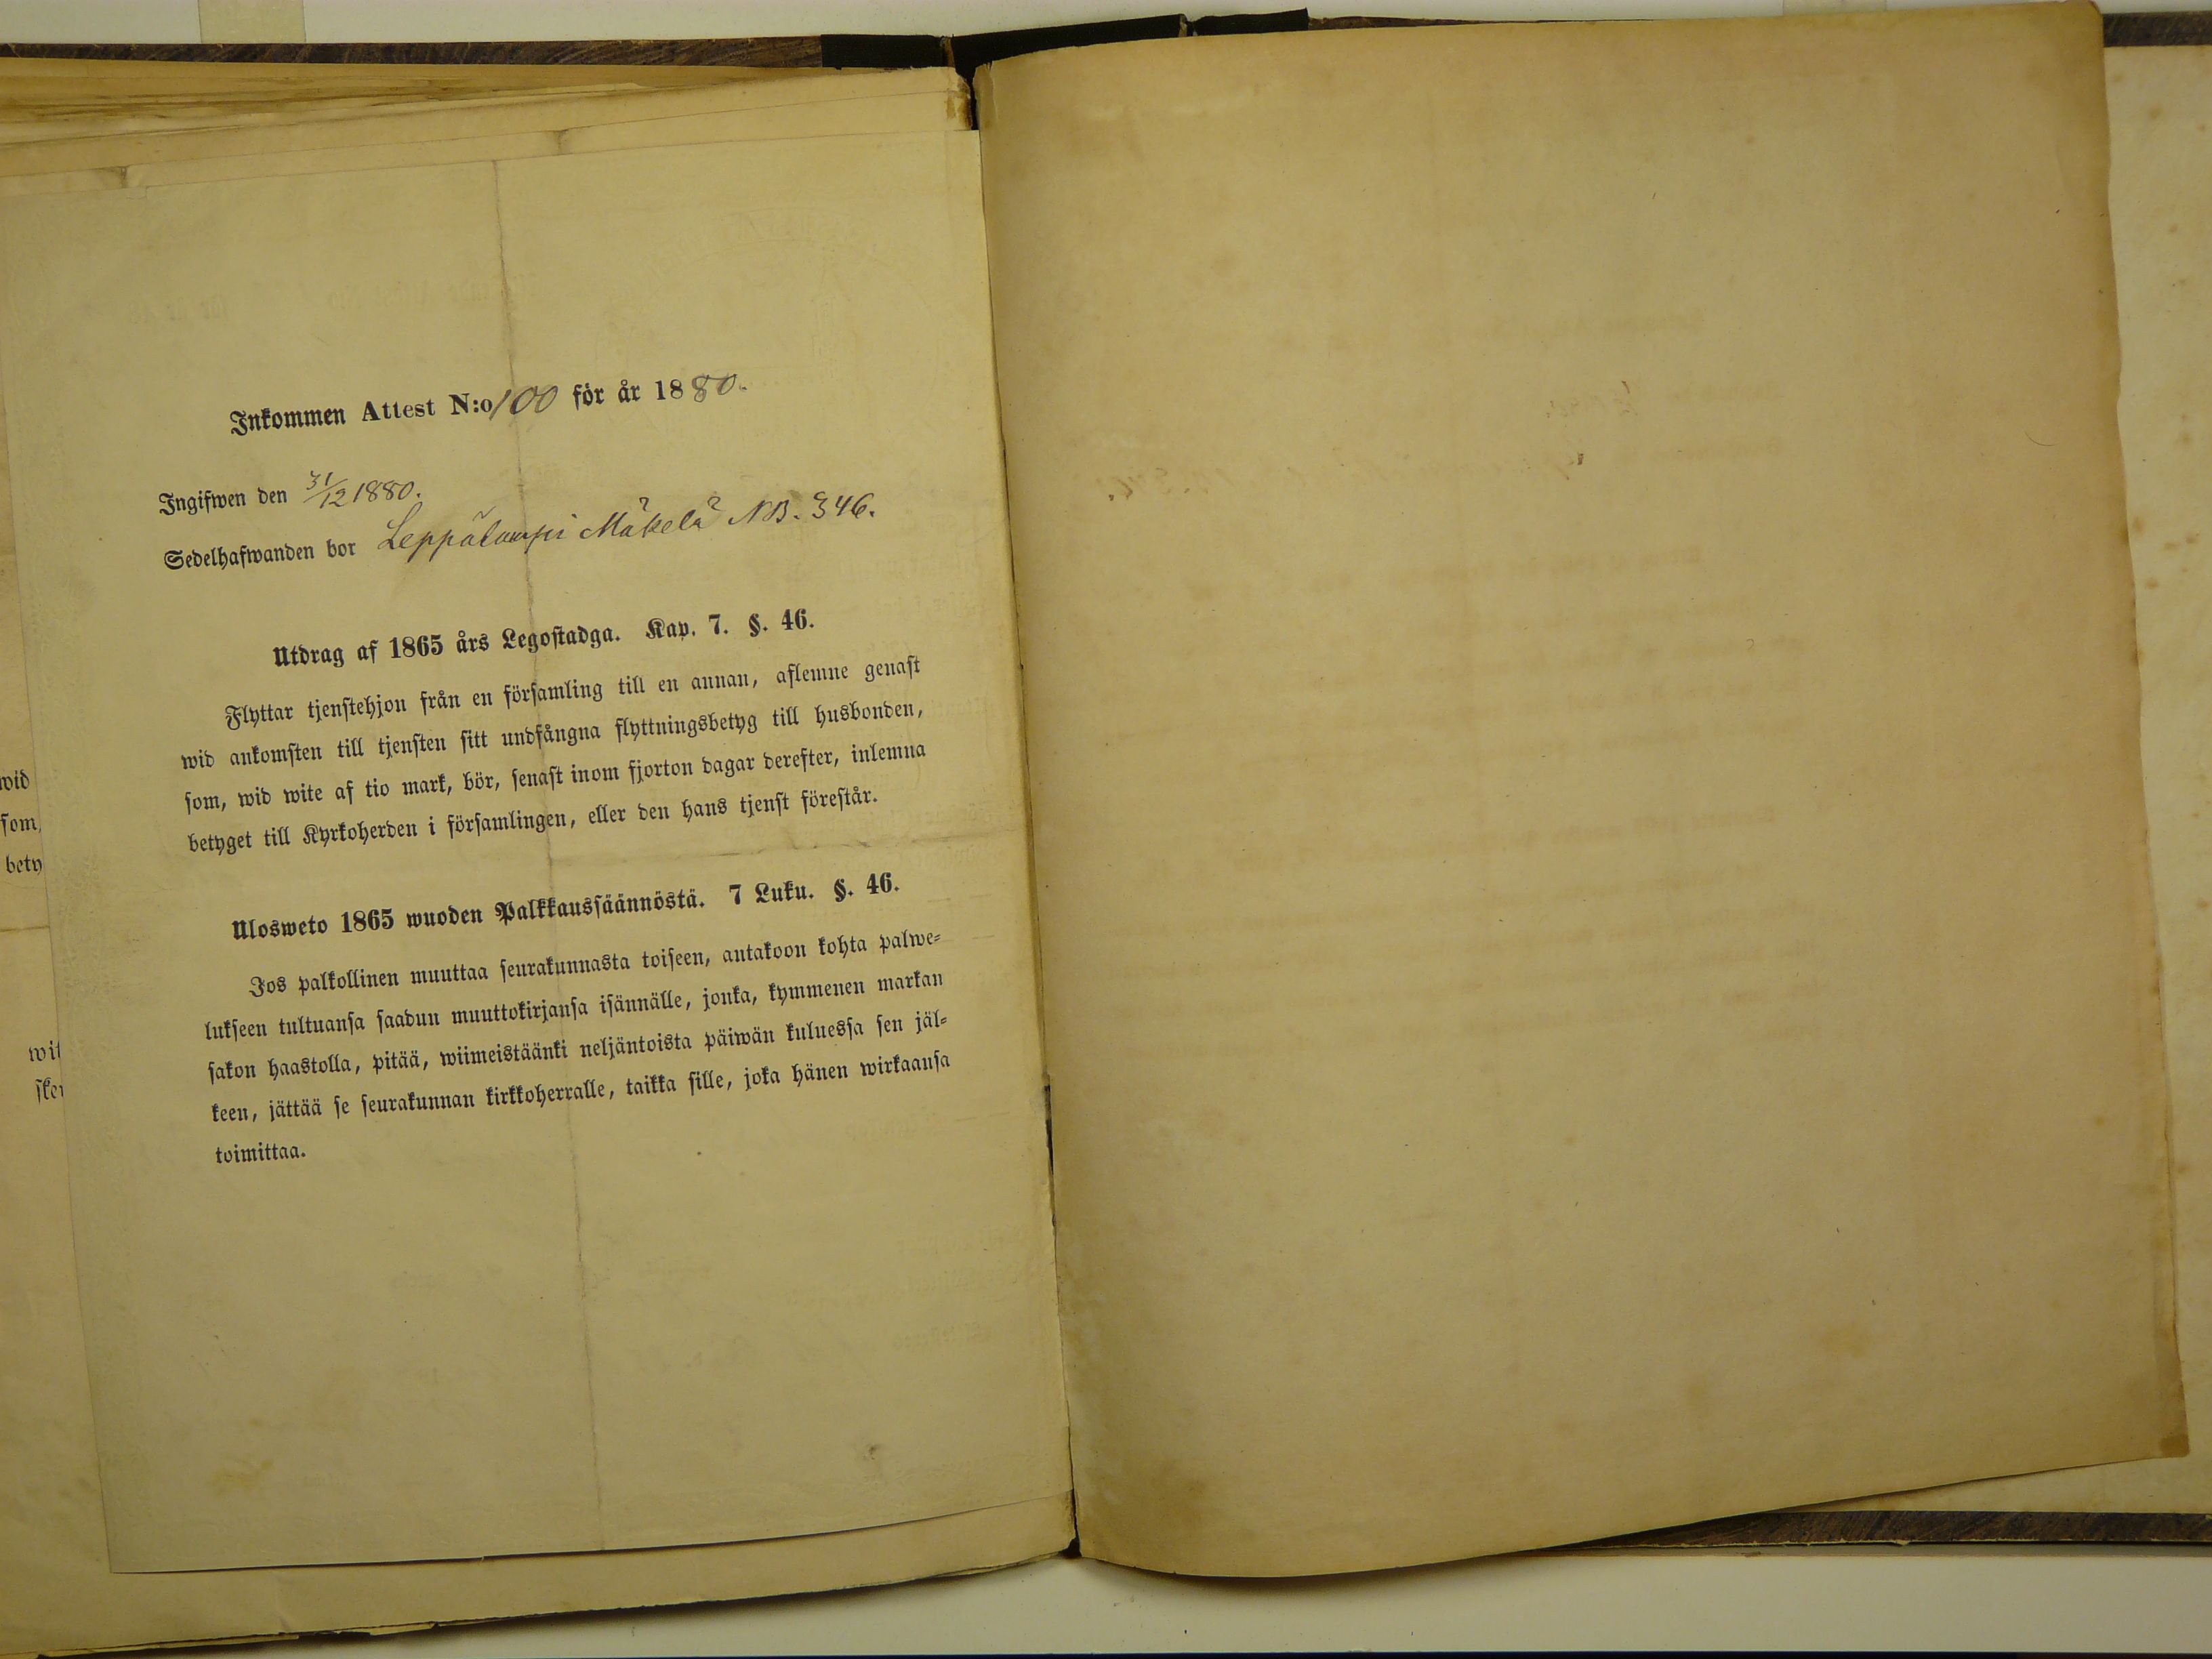 Inkommen Attest N:o 100 för år 1880.
Ingifwen den 31/12 1880.
Sedelhafwanden bor Leppälampi Mäkelä NB. 346.
Utdrag af 1865 års Legostadga. Kap. 7. §. 46.
Flyttar tjenstehjon från en församling till en annan, aflemne genast
wid ankomsten till tjensten sitt undfångna flyttningsbetyg till husbonden,
som, wid wite af tio mark, bör, senast inom fjorton dagar derefter, inlemna
betyget till Kyrkoherden i församlingen, eller den hans tjenst förestår.
Ulosweto 1865 wuoden Palkkaussäännöstä. 7 Luku. §. 46.
Jos palkollinen muuttaa seurakunnasta toiseen, antakoon kohta palwe-
lukseen tultuansa saadun muuttokirjansa isännälle, jonka, kymmenen markan
sakon haastolla, pitää, wiimeistäänki neljäntoista päiwän kuluessa sen jäl-
keen, jättää se seurakunnan kirkkoherralle, taikka sille, joka hänen wirkaansa
toimittaa.
wid
som,
bety